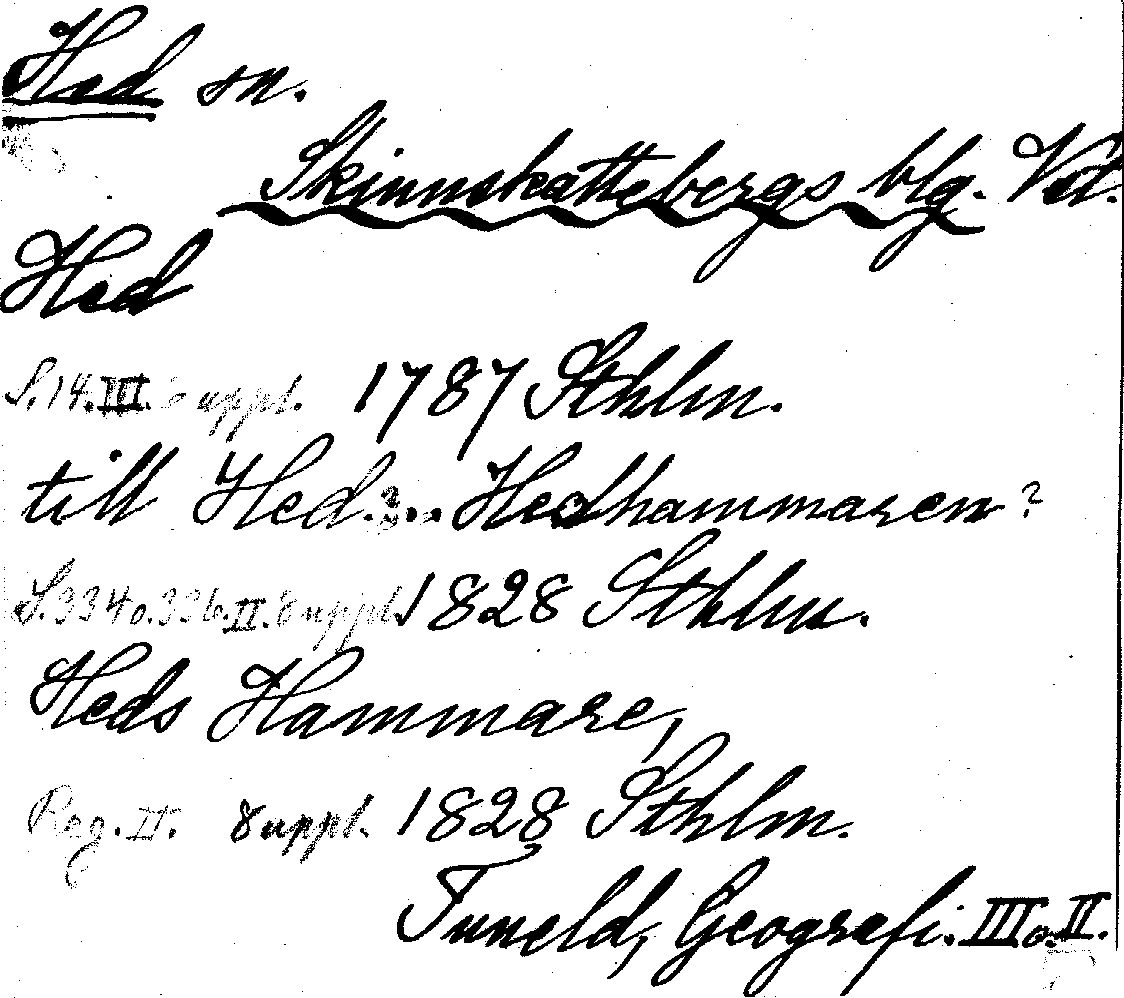 Hed sn.
Skinnskattebergs blg. Vstl.
Hed
S.14.III. 8 uppl. 1787 Sthlm.
till Hed... Hedhammaren?
S.334 o. 336. II. 8 uppl. 1828 Sthlm.
Heds Hammare,
Reg. II. 8 uppl. 1828 Sthlm.
Tuneld, Geografi. III o. II.